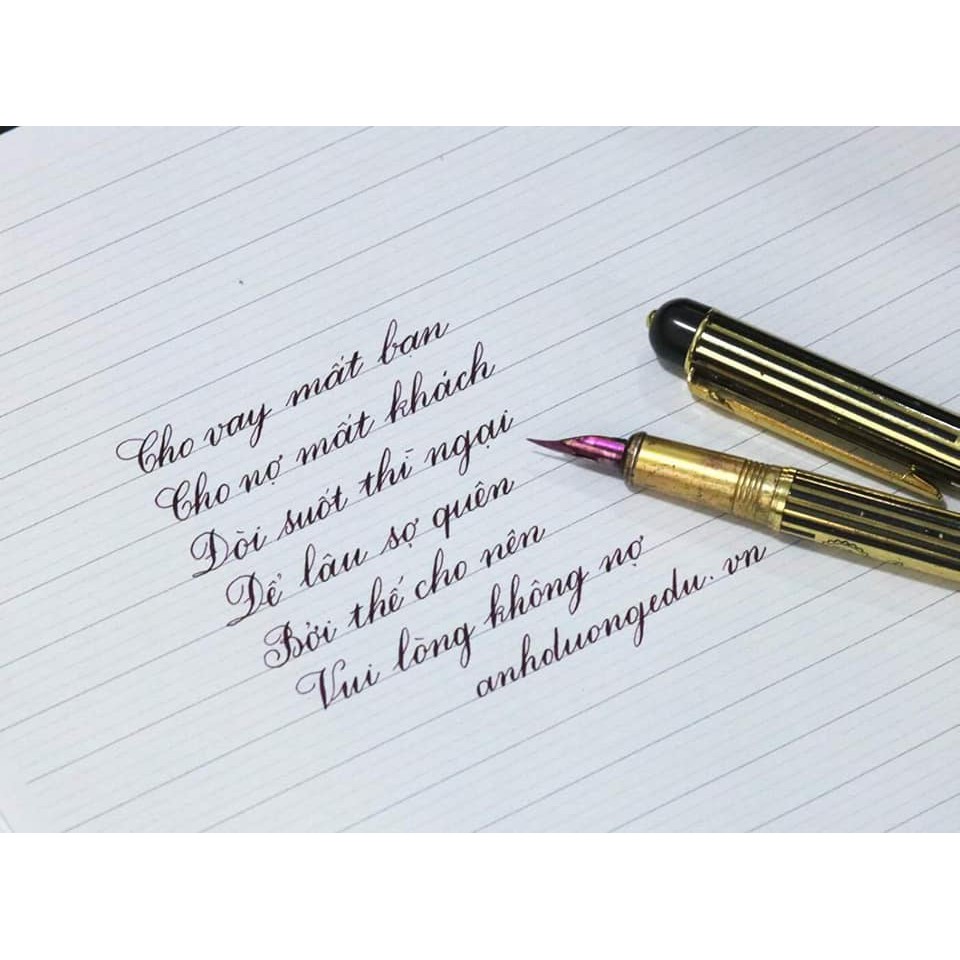 Cho vay mất bạn
Cho nợ mất khách
Đòi suốt thì ngại
Để lâu sợ quên
Bởi thế cho nên
Vui lòng không nợ
anhduongedu.vn